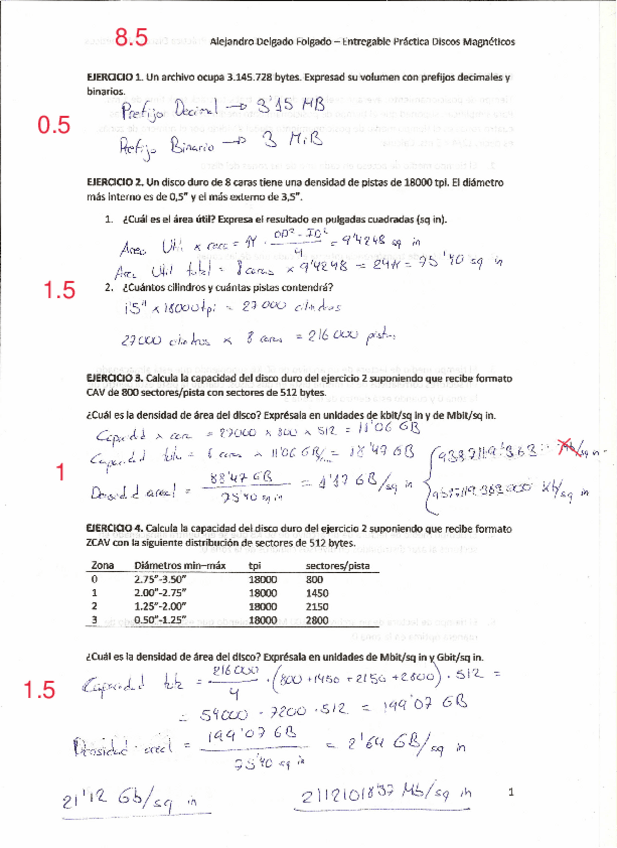 8.5
Alejandro Delgado Folgado – Entregable Práctica Discos Magnéticos
EJERCICIO 1. Un archivo ocupa 3.145.728 bytes. Expresad su volumen con prefijos decimales y
binarios.
Prefijo Decimal → 3'15 MB
0.5
Prefijo Binario → 3 MiB
EJERCICIO 2. Un disco duro de 8 caras tiene una densidad de pistas de 18000 tpi. El diámetro
más interno es de 0,5” y el más externo de 3,5”.
1. ¿Cuál es el área útil? Expresa el resultado en pulgadas cuadradas (sq in).
Area Util x cara = π · OD² - ID² / 4 = 9'4248 sq in
Area Util total = 8 caras x 9'4248 = 24π = 75'40 sq in
1.5
2. ¿Cuántos cilindros y cuántas pistas contendrá?
1'5" x 18000 tpi = 27000 cilindros
27000 cilindros x 8 caras = 216000 pistas
EJERCICIO 3. Calcula la capacidad del disco duro del ejercicio 2 suponiendo que recibe formato
CAV de 800 sectores/pista con sectores de 512 bytes.
¿Cuál es la densidad de área del disco? Exprésala en unidades de kbit/sq in y de Mbit/sq in.
Capacidad x cara = 27000 x 800 x 512 = 11'06 GB
Capacidad total = 8 caras x 11'06 GB/ = 88'47 GB
1
Densidad areal = 88'47 GB / 75'40 sq in = 1'17 GB/sq in
EJERCICIO 4. Calcula la capacidad del disco duro del ejercicio 2 suponiendo que recibe formato
ZCAV con la siguiente distribución de sectores de 512 bytes.
Zona Diámetros min–máx tpi sectores/pista
0 2.75”-3.50” 18000 800
1 2.00”-2.75” 18000 1450
2 1.25”-2.00” 18000 2150
3 0.50”-1.25” 18000 2800
¿Cuál es la densidad de área del disco? Exprésala en unidades de Mbit/sq in y Gbit/sq in.
1.5
Capacidad total = 216000 / 4 · (800 + 1450 + 2150 + 2800) · 512 =
= 54000 · 7200 · 512 = 199'07 GB
Densidad areal = 199'07 GB / 75'40 sq in = 2'64 GB/sq in
21'12 Gb/sq in
Mb/sq in
1